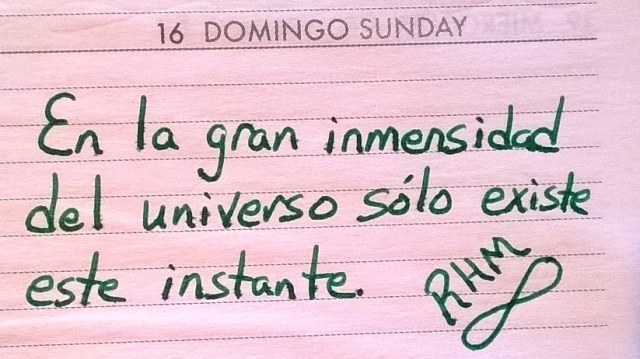 16 DOMINGO SUNDAY
En la gran inmensidad
del universo sólo existe
este instante.
RHM